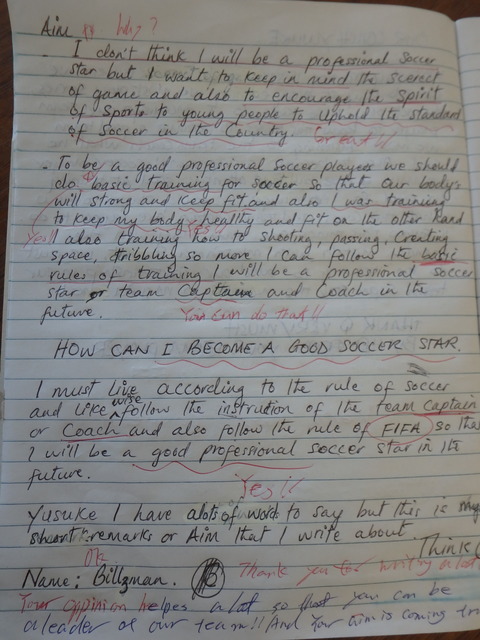 Aim Why?
- I don't think I will be a professional Soccer
star but I want to keep in mind the screct
of game and also to encourage the Spirit
of Sports to young people to uphold the standard
of Soccer in the Country. Great!!
- To be a good professional Soccer players we should
do basic training for soccer so that our body's
will strong and keep fit and also I was training
to keep my body healthy and fit on the other hand
Yes!!
Yes!! I also training how to shooting, passing, Creating
space, dribbling so more I can follow the basic
rules of training I will be a professional soccer
star or team Captain and Coach in the
future. You can do that!!
HOW CAN I BECOME A GOOD SOCCER STAR.
I must Live according to the rule of soccer
and like wise follow the instrution of the team captain
or Coach and also follow the rule of FIFA so tha
I will be a good professional soccer star in the
future.
Yes!!
Yusuke I have alots of word to say but this is my
short remarks or Aim that I write about.
Ok Think
Name: Billzman. Thank you for writing a lot
Your oppinion helps a lot so that you can be
a leader of our team!! And Your aim is coming tr